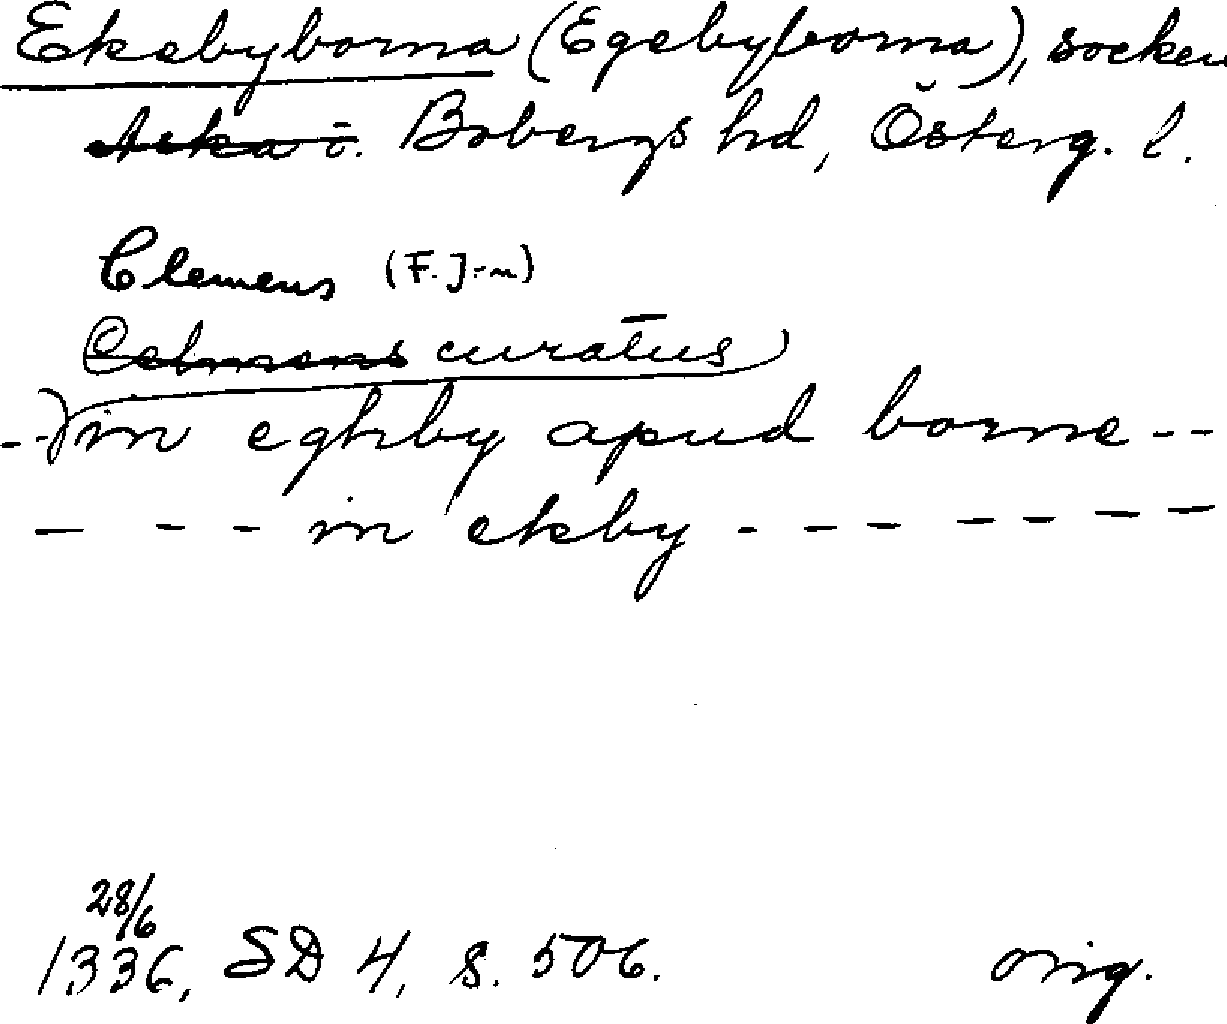 Ekebyborna (Egebyborna), socken
Aska o. Bobergs hd, Österg. l.
Clemens (F. J-n)
Celmens curatus
--) in eghby apud borne --
- - - in ekby - - - - - - -
28/6
1336, SD 4, s. 506. orig.